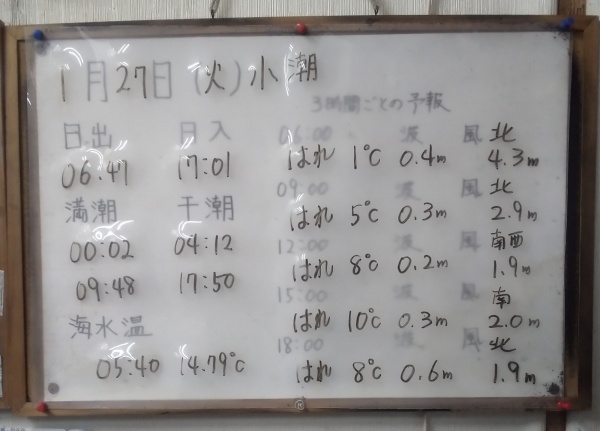 1月27日(火)小潮
3時間ごとの予報
日出 日入
06:47 17:01
満潮 干潮
00:02 04:12
09:48 17:50
海水温
05:40 14.79℃
06:00 波 風 北
はれ 1℃ 0.4m 4.3m
09:00 波 風 北
はれ 5℃ 0.3m 2.9m
12:00 波 風 南西
はれ 8℃ 0.2m 1.9m
15:00 波 風 南
はれ 10℃ 0.3m 2.0m
18:00 波 風 北
はれ 8℃ 0.6m 1.9m